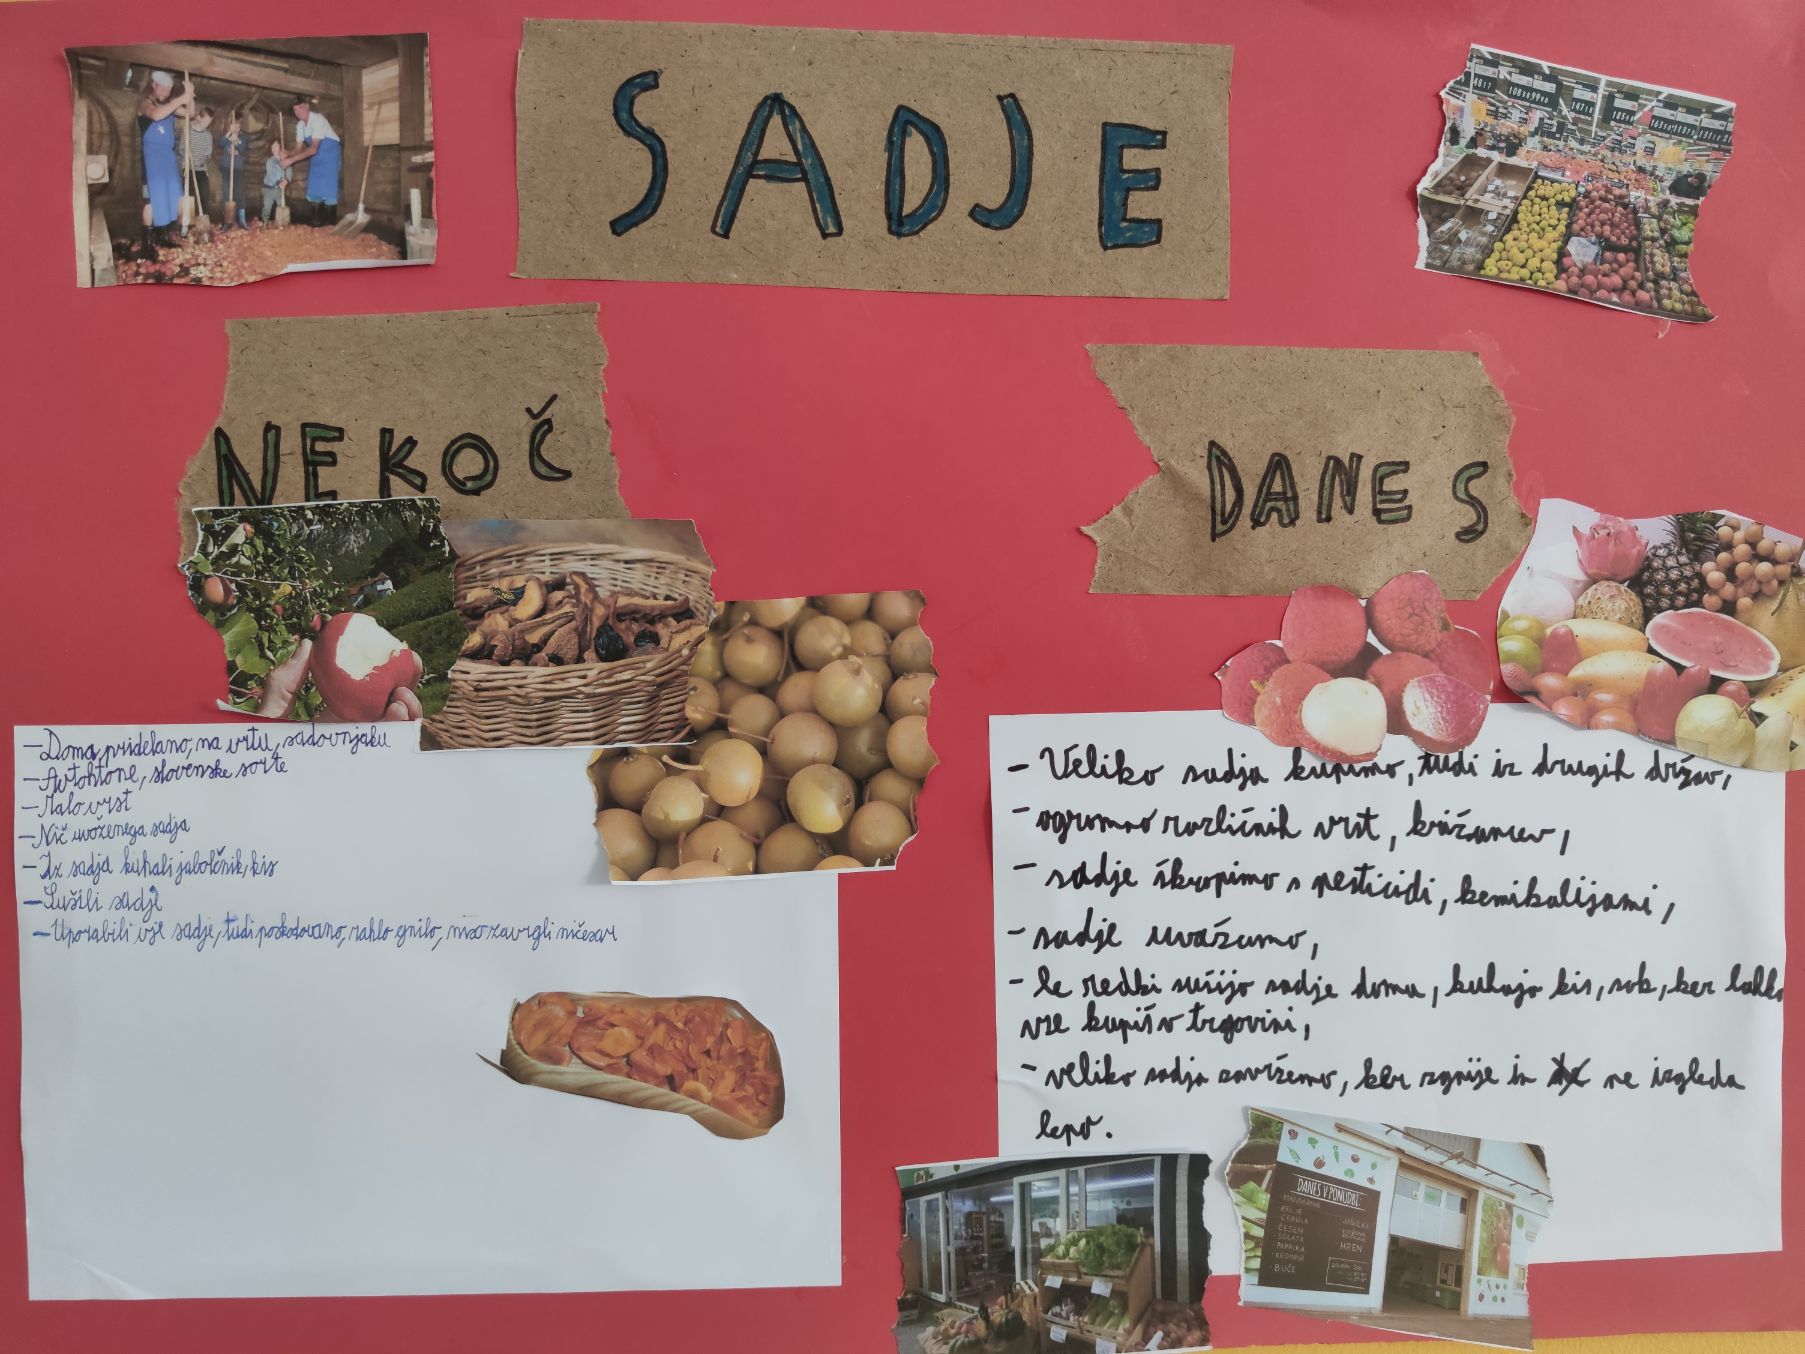 SADJE
NEKOČ
DANES
- Doma pridelano, na vrtu, sadovnjaku
- Avtohtone, slovenske sorte
- Malo vrst
- Nič uvoženega sadja
- Iz sadja kuhali jabolčnik, kis
- Sušili sadje
- Uporabili vse sadje, tudi poškodovano, rahlo gnilo, niso zavrgli ničesar
- Veliko sadja kupimo, tudi iz drugih držav,
- ogromno različnih vrst, križancev,
- sadje škropimo s pesticidi, kemikalijami,
- sadje uvažamo,
- le redki sušijo sadje doma, kuhajo kis, sok, ker lahko
vse kupiš v trgovini,
- veliko sadja zavržemo, ker zgnije in ne izgleda
lepo.
DANES V PONUDBI:
MANDARINE
ZELJE
ČEBULA
ČESEN
SOLATA
PAPRIKA
KROMPIR
- BUČE
JABOLKA
HREN